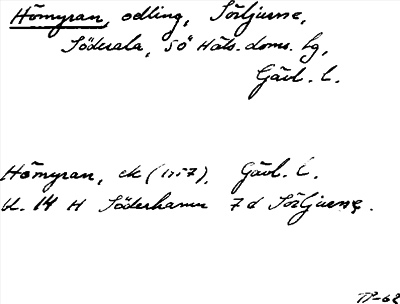 Hömyran, odling, Sörljusne,
Söderala, Sö Häls. doms. hg,
Gävl. l.
Hömyran, ek (1957), Gävl. l.
bl. 14 H Söderhamn 7 d Sörljusne.
TP-62